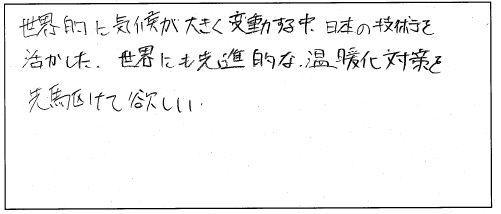 世界的に気候が大きく変動する中、日本の技術を
活かした、世界にも先進的な、温暖化対策を
先駆けて欲しい。